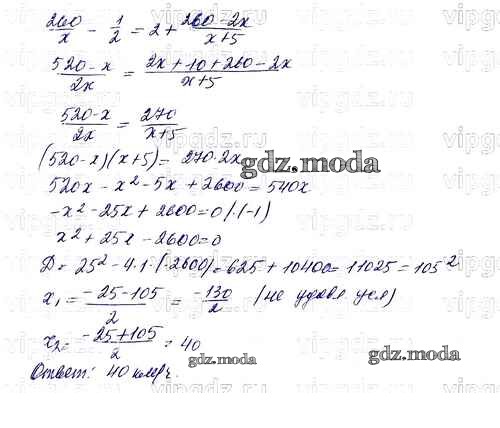 260/x - 1/2 = 2 + 260-2x/x+5
520-x/2x = 2x+10+260-2x/x+5
520-x/2x = 270/x+5
(520-x)(x+5)= 270·2x
gdz.moda
520x - x² - 5x + 2600 = 540x
-x² - 25x + 2600 = 0 /·(-1)
x² + 25x - 2600 = 0
D = 25² - 4·1·(-2600) = 625 + 10400 = 11025 = 105²
x₁ = -25-105/2 = -130/2 (не удовл усл)
x₂ = -25+105/2 = 40
gdz.moda
Ответ: 40
gdz.moda